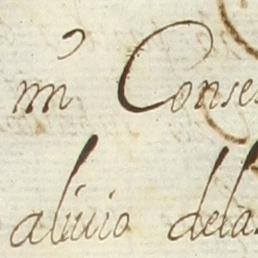 mi Conse
alivio dela